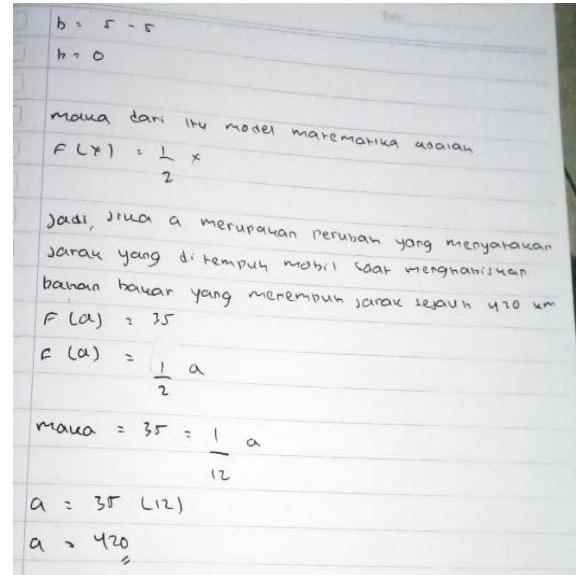 b = 5 - 5
b = 0
maka dari itu model matematika adalah
F(x) = 1/2 x
Jadi, jika a merupakan perubah yang menyatakan
jarak yang di tempuh mobil saat menghabiskan
bahan bakar yang menempuh jarak sejauh 420 km
F(a) = 35
F(a) = 1/2 a
maka = 35 = 1/12 a
a = 35 (12)
a = 420